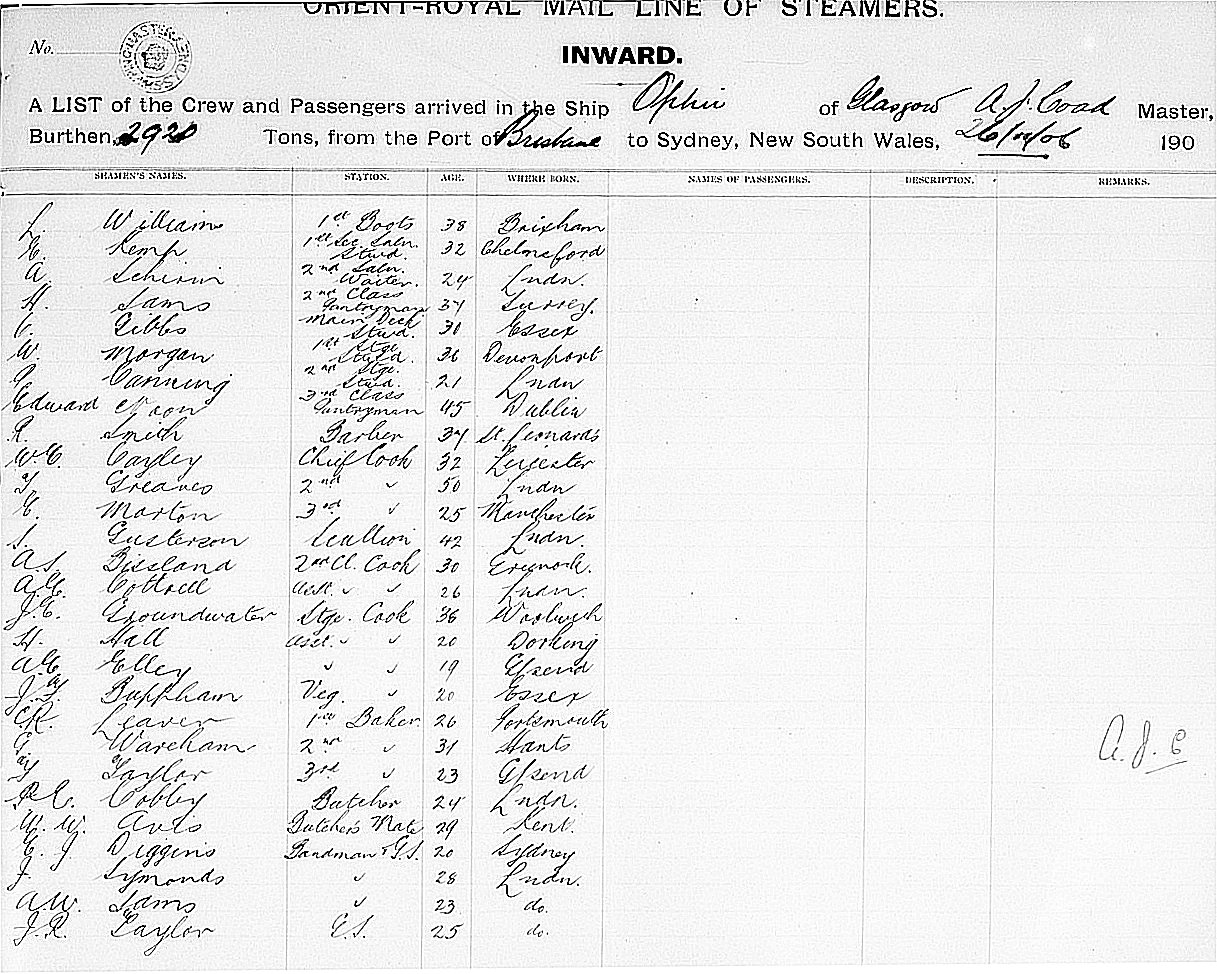 ORIENT-ROYAL MAIL LINE OF STEAMERS.
No.
INWARD.
A LIST of the Crew and Passengers arrived in the Ship Ophir of Glasgow A. J. Coad Master,
Burthen, 2920 Tons, from the Port of Brisbane to Sydney, New South Wales, 190
SEAMEN'S NAMES. STATION. AGE. WHERE BORN. NAMES OF PASSENGERS. DESCRIPTION. REMARKS.
L. Williams 1st Boots 38 Brixham
Kemp 1st Sec Saln. Stwd. 32 Chelmsford
A. 2nd Saln. Waiter. 24 Lndn.
H. Sams 2nd Class Pantryman 37 Surrey.
Gibbs Main Deck Stwd. 30 Essex
W. Morgan 1st Stge Stwd. 36 Devonport
Canning 2nd Stge. Stwd. 21 Lndn
Edward Noon 3rd Class Pantryman 45 Dublin
R. Smith Barber 37 St. Leonards
W.E. Cayley Chief Cook 32 Leicester
Greaves 2nd " 50 Lndn
E. Morton 3rd " 25 Manchester
S. Gusterson Scullion 42 Lndn.
A.S. Bissland 2nd Cl. Cook 30 Greenock.
A.E. Cottrell Asst. " " 26 Lndn.
J.E. Groundwater Stge. Cook 36 Woolwich
H. Hall Asst. " " 20 Dorking
A.E. Elley " " 19 G'send
Buffham Veg. " 20 Essex
Leaver 1st Baker 26 Portsmouth
G. Wareham 2nd " 31 Hants
Taylor 3rd " 23 G'send
A. J. C
Cobley Butcher 24 Lndn.
W. W. Avis Butcher's Mate 29 Kent.
E. J. Diggins Bandman & G.S. 20 Sydney
J. Symonds " 28 Lndn.
A.W. Sams " 23 do.
J.R. Taylor 25 do.